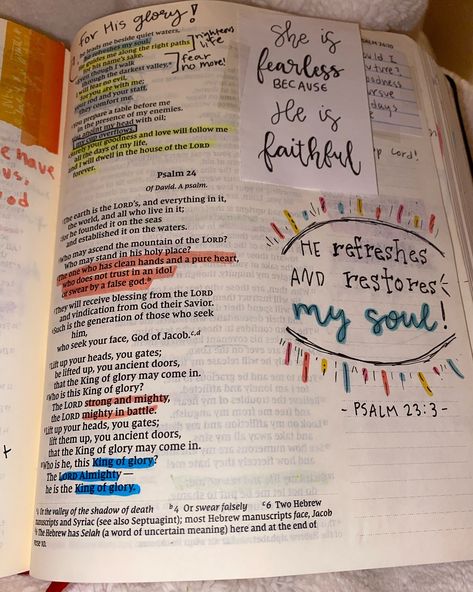 for His glory!
he leads me beside quiet waters,
he refreshes my soul.
He guides me along the right paths
for his name's sake.
Even though I walk
through the darkest valley,
I will fear no evil,
for you are with me;
your rod and your staff,
they comfort me.
righteous
life
fear
no more!
You prepare a table before me
in the presence of my enemies.
You anoint my head with oil;
my cup overflows.
Surely your goodness and love will follow me
all the days of my life,
and I will dwell in the house of the LORD
forever.
Psalm 24
Of David. A psalm.
The earth is the LORD's, and everything in it,
the world, and all who live in it;
for he founded it on the seas
and established it on the waters.
Who may ascend the mountain of the LORD?
Who may stand in his holy place?
The one who has clean hands and a pure heart,
who does not trust in an idol
or swear by a false god.b
They will receive blessing from the LORD
and vindication from God their Savior.
Such is the generation of those who seek
him,
who seek your face, God of Jacob.c,d
Lift up your heads, you gates;
be lifted up, you ancient doors,
that the King of glory may come in.
Who is this King of glory?
The LORD strong and mighty,
the LORD mighty in battle.
Lift up your heads, you gates;
lift them up, you ancient doors,
that the King of glory may come in.
Who is he, this King of glory?
The LORD Almighty—
he is the King of glory.
in the valley of the shadow of death b4 Or swear falsely c6 Two Hebrew
manuscripts and Syriac (see also Septuagint); most Hebrew manuscripts face, Jacob
The Hebrew has Selah (a word of uncertain meaning) here and at the end of
verse 10.
She is
fearless
BECAUSE
He is
faithful
HE refreshes
AND restores
my soul!
- PSALM 23:3 -
have
us,
God
PSALM 34:10
days
Lord!